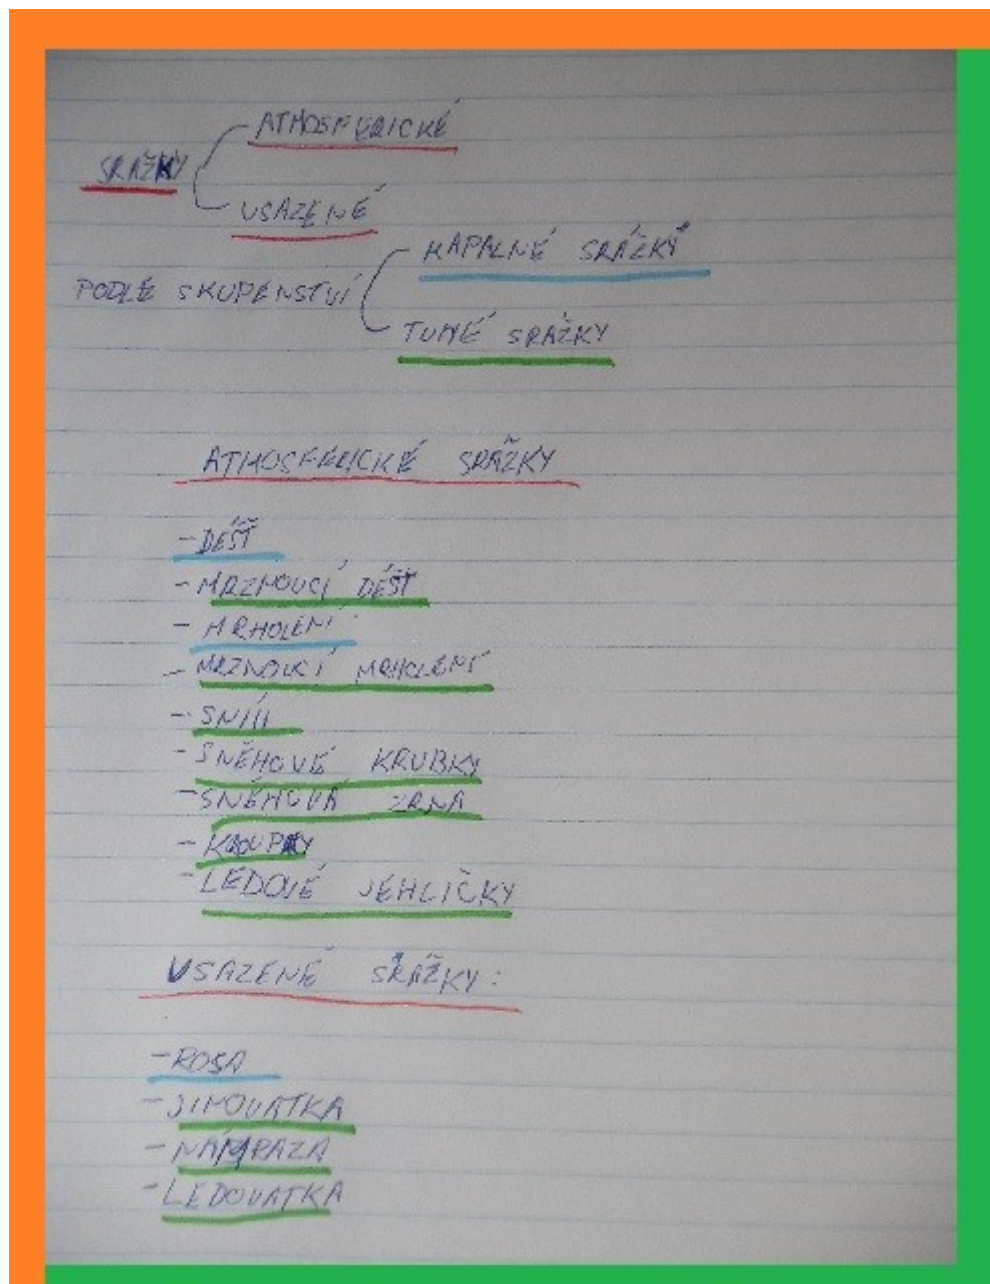 ATMOSFERICKÉ
SRÁŽKY
USAZENÉ
KAPALNÉ SRÁŽKY
PODLE SKUPENSTVÍ
TUHÉ SRÁŽKY
ATMOSFERICKÉ SRÁŽKY
- DÉŠŤ
- MRZNOUCÍ DÉŠŤ
- MRHOLENÍ
- MRZNOUCÍ MRHOLENÍ
- SNÍH
- SNĚHOVÉ KRUBKY
- SNĚHOVÁ ZRNA
- KROUPY
- LEDOVÉ JEHLIČKY
USAZENÉ SRÁŽKY:
- ROSA
- JINOVATKA
- NÁMRAZA
- LEDOVATKA